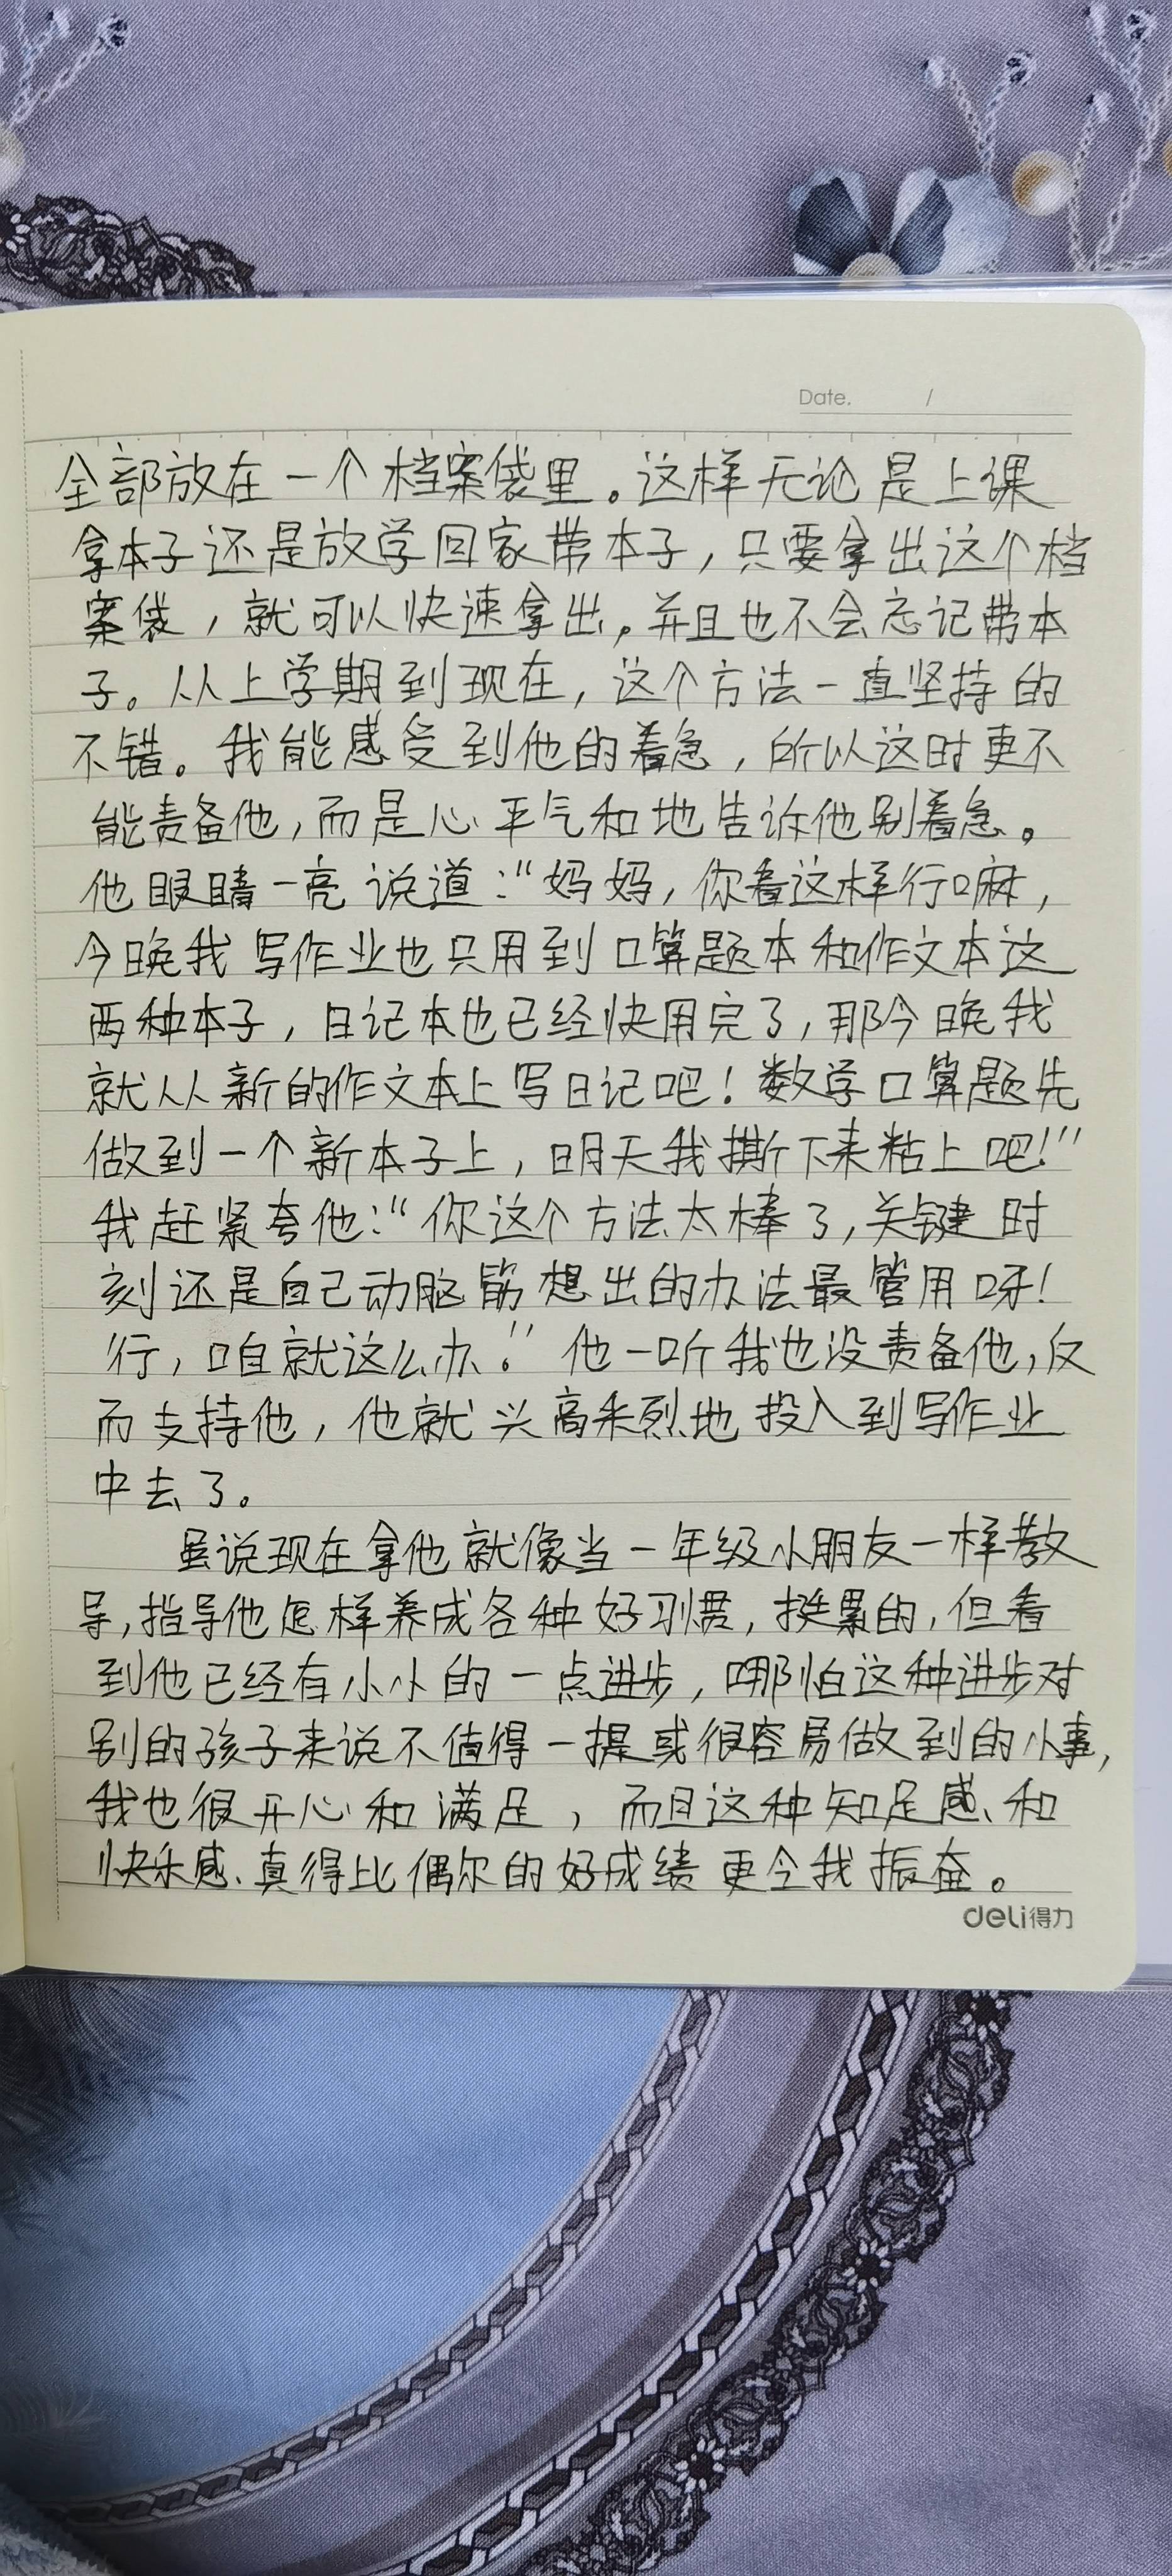 Date. /
全部放在一个档案袋里。这样无论是上课
拿本子还是放学回家带本子，只要拿出这个档
案袋，就可以快速拿出，并且也不会忘记带本
子。从上学期到现在，这个方法一直坚持的
不错。我能感受到他的着急，所以这时更不
能责备他，而是心平气和地告诉他别着急。
他眼睛一亮说道：“妈妈，你看这样行嘛，
今晚我写作业也只用到口算题本和作文本这
两种本子，日记本也已经快用完了，那今晚我
就从新的作文本上写日记吧！数学口算题先
做到一个新本子上，明天我撕下来粘上吧！”
我赶紧夸他：“你这个方法太棒了，关键时
刻还是自己动脑筋想出的办法最管用呀！
行，咱就这么办。”他一听我也没责备他，反
而支持他，他就兴高采烈地投入到写作业
中去了。
虽说现在拿他就像当一年级小朋友一样教
导，指导他怎样养成各种好习惯，挺累的，但看
到他已经有小小的一点进步，哪怕这种进步对
别的孩子来说不值得一提或很容易做到的小事，
我也很开心和满足，而且这种知足感、和
快乐感、真得比偶尔的好成绩更令我振奋。
deli得力